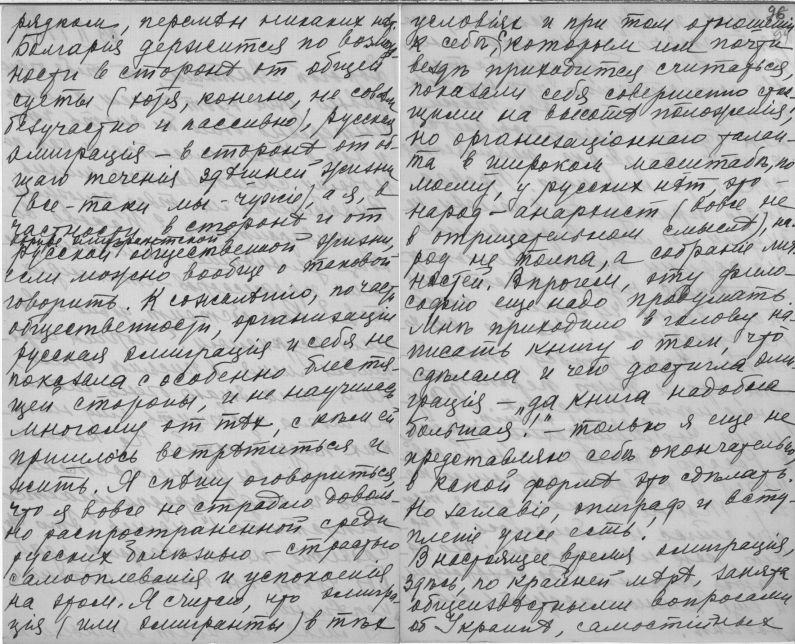 рядком, перемѣн никаких нѣт.
Болгарія держится по возмож-
ности в сторонѣ от общей
суеты (хотя, конечно, не совсѣм
безучастно и пассивно), русская
эмиграція – в сторонѣ от об-
щаго теченія здѣшней жизни
(все-таки мы – чужіе), а я, в
частности, в сторонѣ и от
эмигрантской
русской общественной жизни,
если можно вообще о таковой
говорить. К сожалѣнію, по части
общественности, организаціи
русская эмиграція и себя не
показала с особенно блестя-
щей стороны, и не научилась
многому от тѣх, с кѣм ей
пришлось встрѣтиться и
жить. Я спѣшу оговориться,
что я вовсе не страдаю доволь-
но распространенной среди
русских болѣзнью – страстью
самооплеванія и успокоенія
на этом. Я считаю, что эмигра-
ція (или эмигранты) в тѣх
96
условіях и при том отношеніи
к себѣ, с которым им почти
вездѣ приходится считаться,
показали себя совершенно стоя-
щими на высотѣ положенія;
но организаціоннаго талан-
та в широком масштабѣ, по
моему, у русских нѣт, это –
народ – анархист (вовсе не
в отрицательном смыслѣ), на-
род не толпа, а собраніе лич-
ностей. Впрочем, эту фило-
софію еще надо продумать.
Мнѣ приходило в голову на-
писать книгу о том, что
сдѣлала и чего достигла эми-
грація – „да книга надобна
большая!" – только я еще не
представляю себѣ окончательно,
в какой формѣ это сдѣлать.
Но заглавіе, эпиграф и всту-
пленіе уже есть.
В настоящее время эмиграція,
здѣсь, по крайней мѣрѣ, занята
общеизвѣстными вопросами
об Украинѣ, самостійных